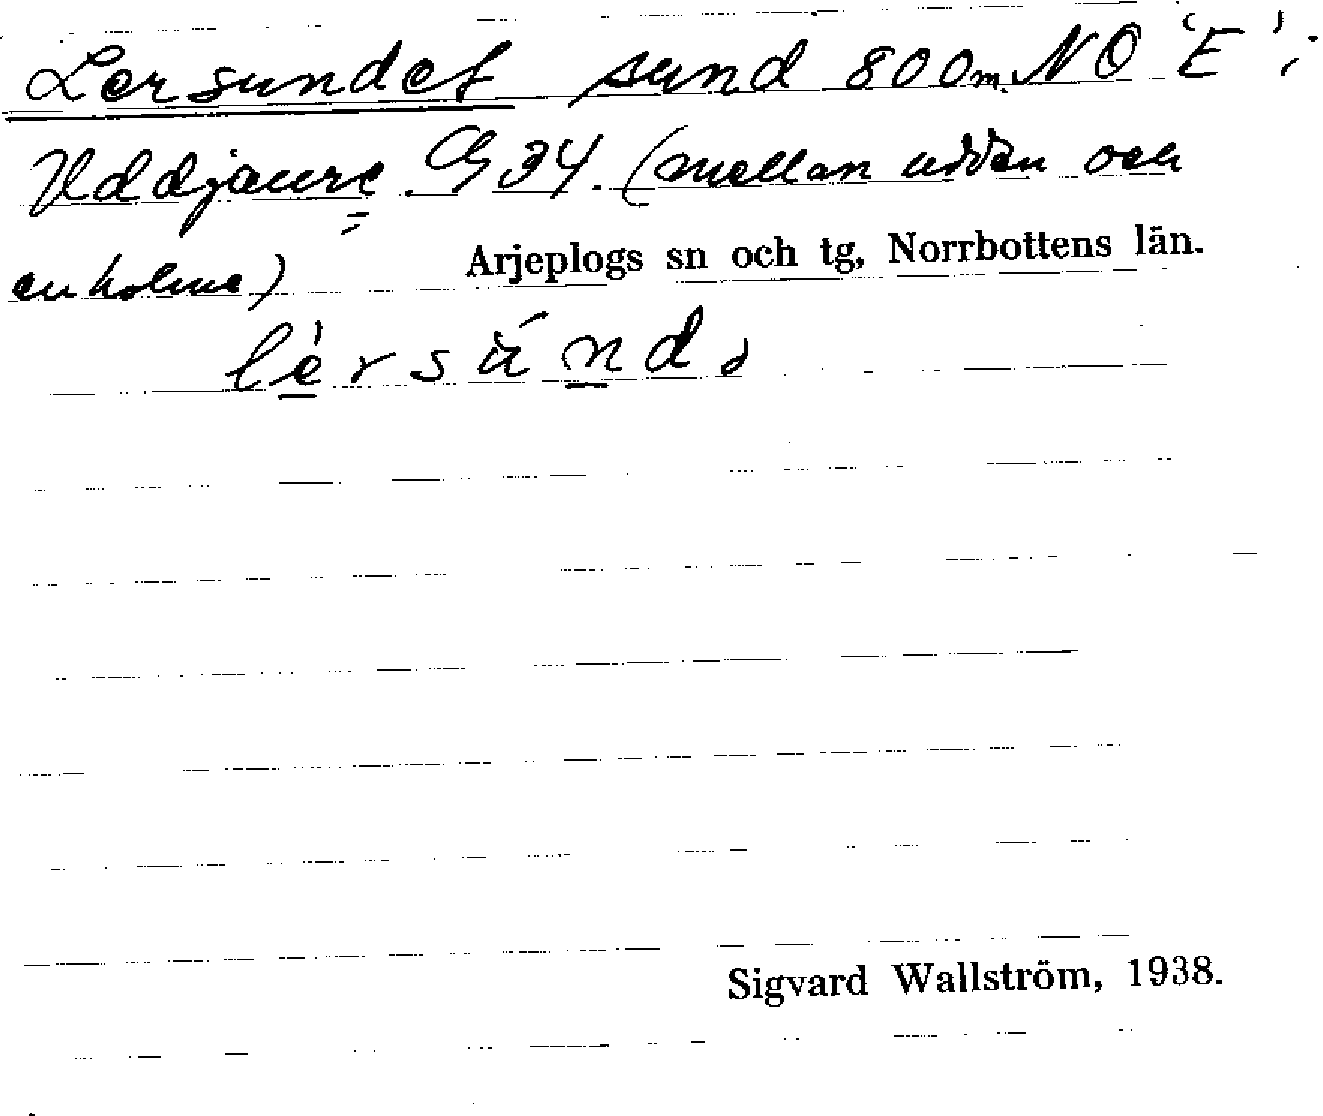 Lersundet sund 800m NO 'E' i
Uddjaure G34. (mellan udden och
en holme) Arjeplogs sn och tg, Norrbottens län.
Sigvard Wallström, 1938.